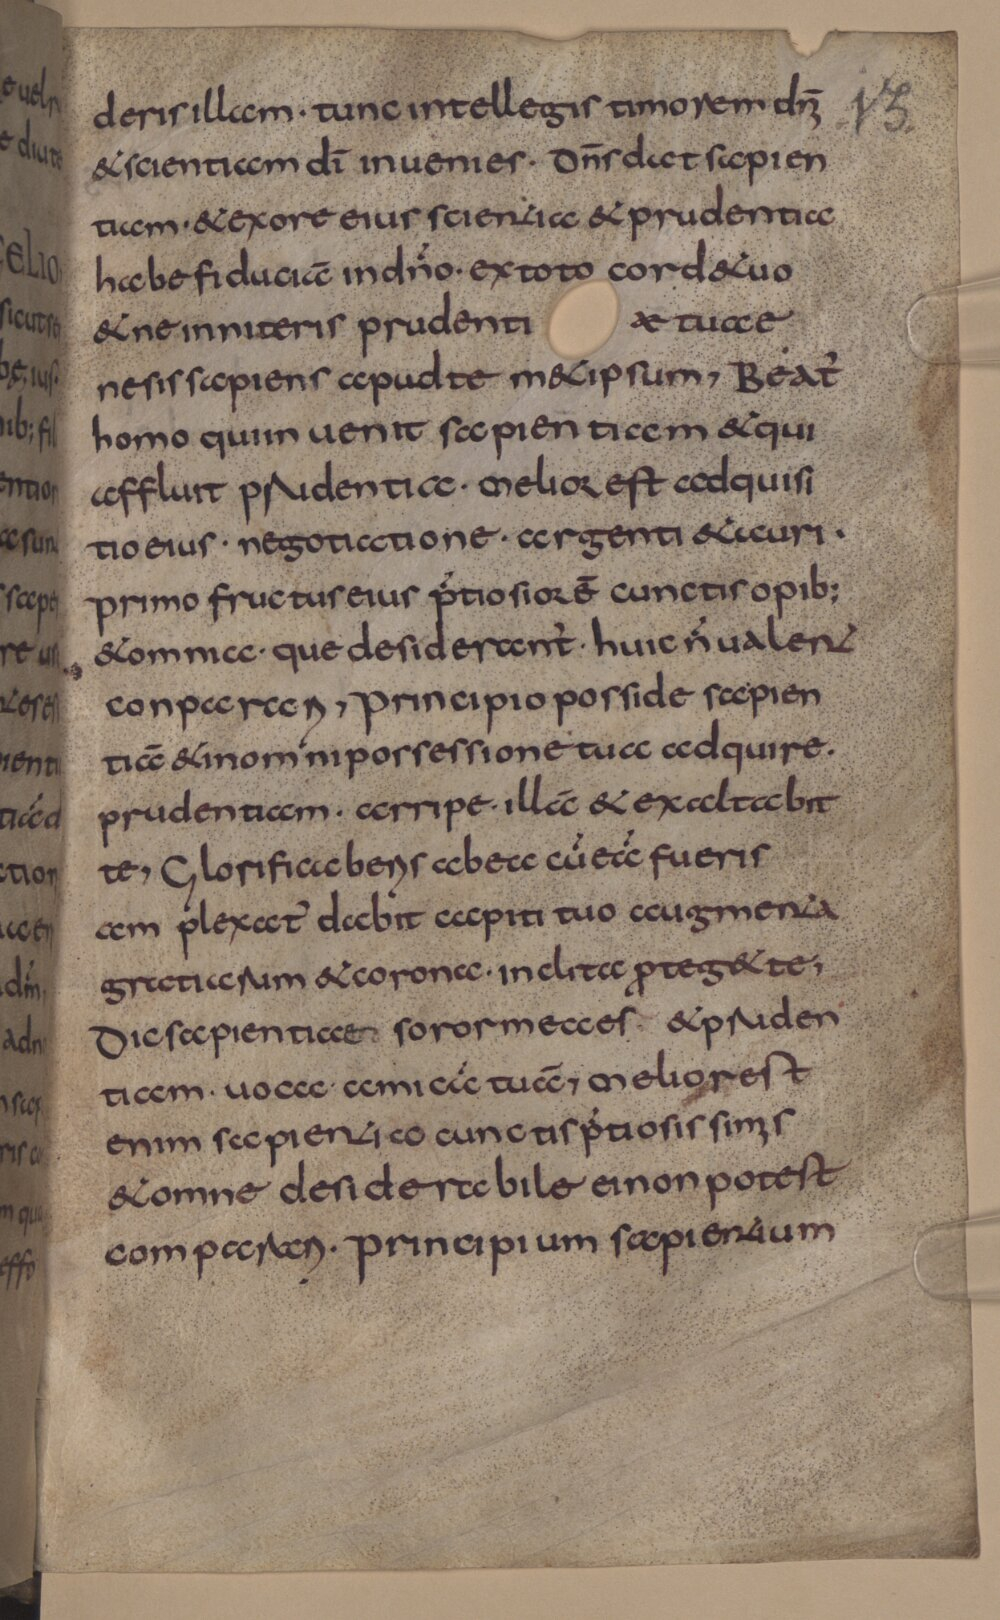 deris illam · tunc intellegis timorem dnī 13.
& scientiam dī inuenies · Dn̄s dat sapien
tiam · & ex ore eius scientia & prudentia
habe fiduciā in dn̄o · ex toto cord& tuo
& ne inniteris prudenti ae tuae
ne sis sapiens apud te m& ipsum, Beat᾽
homo qui inuenit sapientiam & qui
affluit prudentia · Melior est adquisi
tio eius · negotiatione · argenti & auri ·
primo fructus eius p̄tiosiorē cunctis opib;
& omnia · que desiderant᾽ · huic n̄ ualent
conparari, Principio posside sapien
tiā & in omni possessione tua adquire ·
prudentiam · arripe · illā & exaltabit
te, Glorificaberis abea cū eā fueris
am plexat᾽ dabit capiti tuo augmenta
gratiarum & corona · inclita proteg& te,
Dic sapientiae soror mea es · & pruden
tiam · uoca · amicā tuā, Melior est
enim sapientia cunctis p̄tiosissimis
& omne desiderabile ei non potest
comparari · Principium sapientium